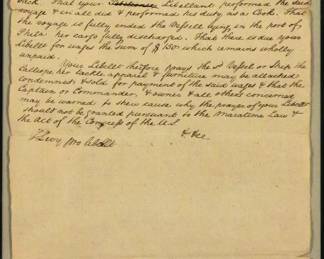 back. That your Libellant performed the said
voyage & in all did & performed his duty as a Cook. That
the voyage is fully ended the Vessell lying in the port of
Phila her cargo fully discharged. That there is due your
Libellt for wages the Sum of $ 150 which remains wholly
unpaid.
Your Libellt therefore prays the sd Vessel or Ship the
Calliope her tackle apparel & furniture may be attached
condemned & sold for payment of the said wages & that the
Captain or Commander, & owner & all others concerned
may be warned to shew cause why the prayer of your Libellt
should not be granted pursuant to the Maratime Law &
the act of the Congress of the U.S.
& &c
Levy pro Libellt